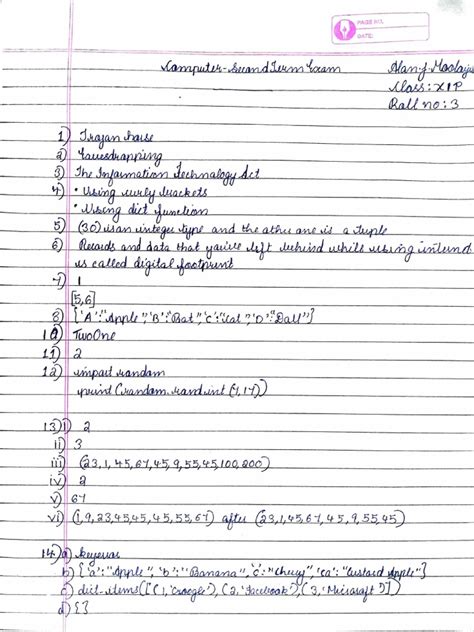 PAGE NO.
DATE:
Computer-Second Term Exam
Alan J. Moolayil
Class: XI P
Roll no: 3
1) Trojan horse
2) Eavesdrapping
3) The Information Technology Act
4) • Using curly brackets
• Using dict function
5) (30) is an integer type and the other one is a tuple
6) Records and data that you've left behind while using internet
is called digital footprint
7) 1
[5,6]
8) {'A':"Apple",'B':"Bat",'C':"Cat",'D':"Doll"}
10) TwoOne
11) 2
12) import random
print (random.randint (1,17))
13) i) 2
ii) 3
iii) (23,1,45,67,45,9,55,45,100,200)
iv) 2
v) 67
vi) (1,9,23,45,45,45,55,67) after (23,1,45,67,45,9,55,45)
14) a)
b) {'a':"Apple",'b':"Banana",'c':"Cherry","ca":"Custard Apple"}
c) dict-items([(1,'Google'), (2,'Facebook'), (3,'Microsoft')])
d) {}